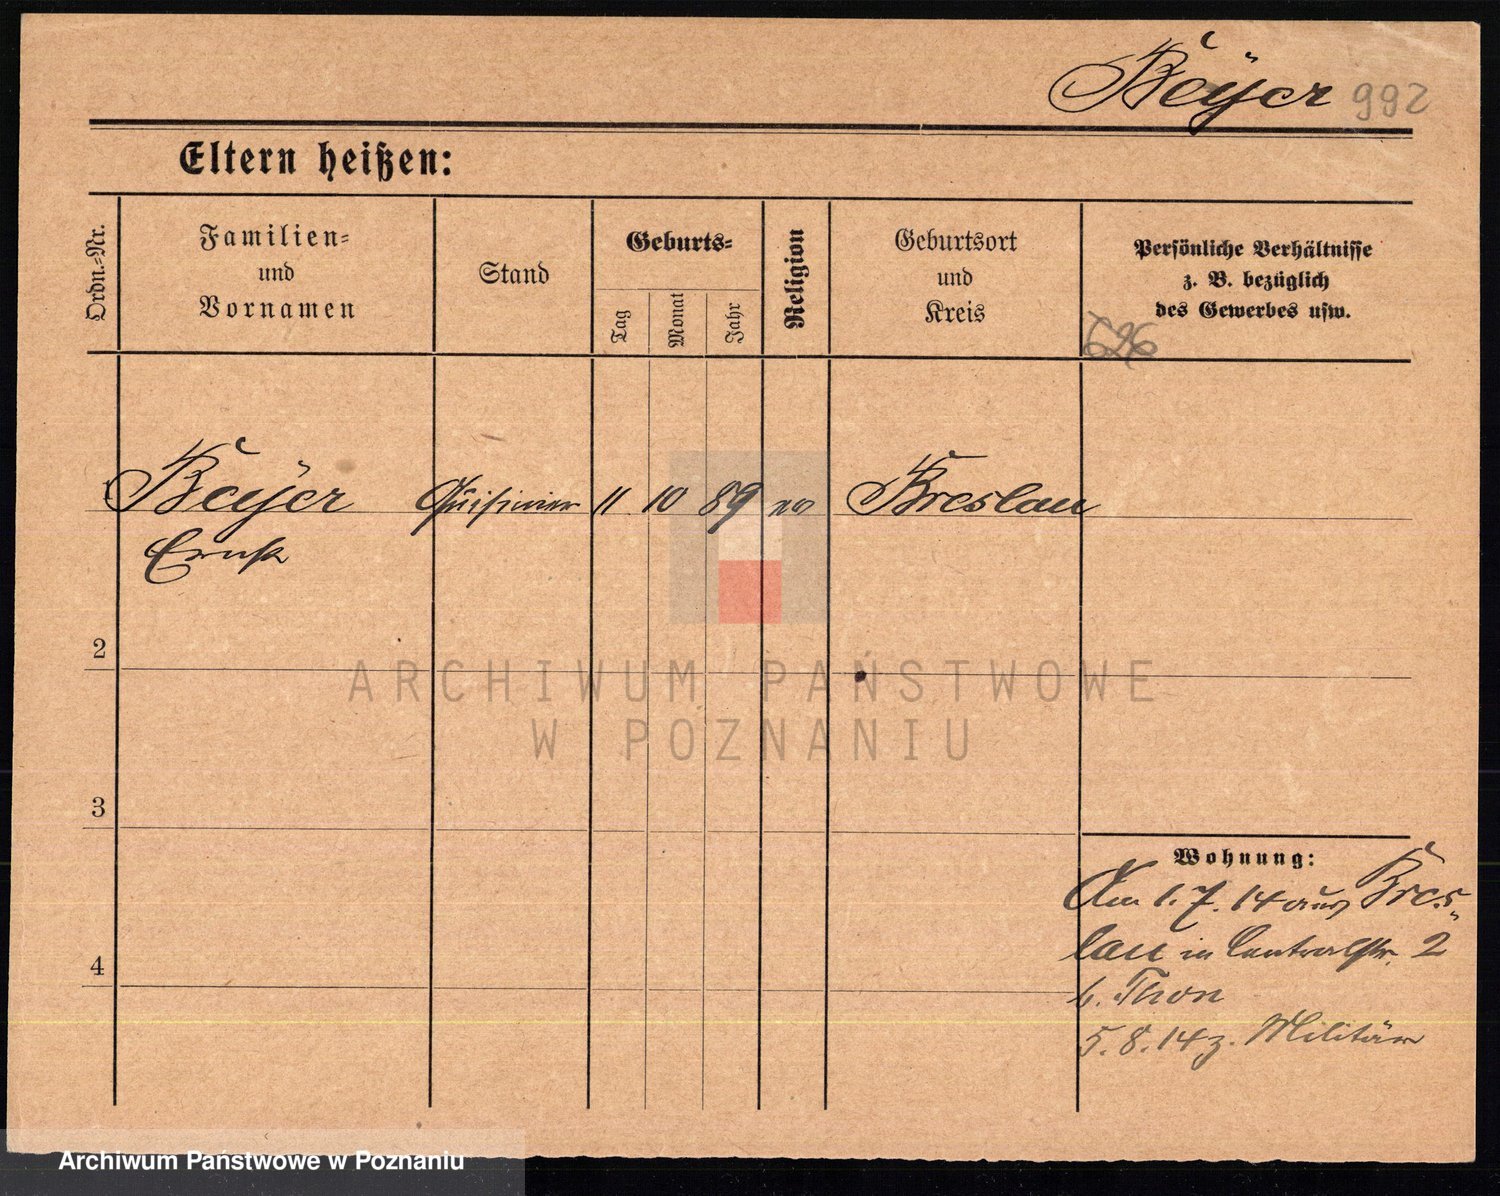 Beÿer 992
Eltern heißen:
Ordn.-Nr.
Familien-
und
Vornamen
Stand
Geburts-
Tag
Monat
Jahr
Religion
Geburtsort
und
Kreis
Persönliche Verhältnisse
z. B. bezüglich
des Gewerbes usw.
1 Beÿer 11 10 89 ev Breslau
Ernst
2
3
4
Wohnung:
Am 1.7.14 aus Bres-
lau in Centralstr. 2
b. Thon
5.8.14 z. Militär
ARCHIWUM PAŃSTWOWE
W POZNANIU
Archiwum Państwowe w Poznaniu